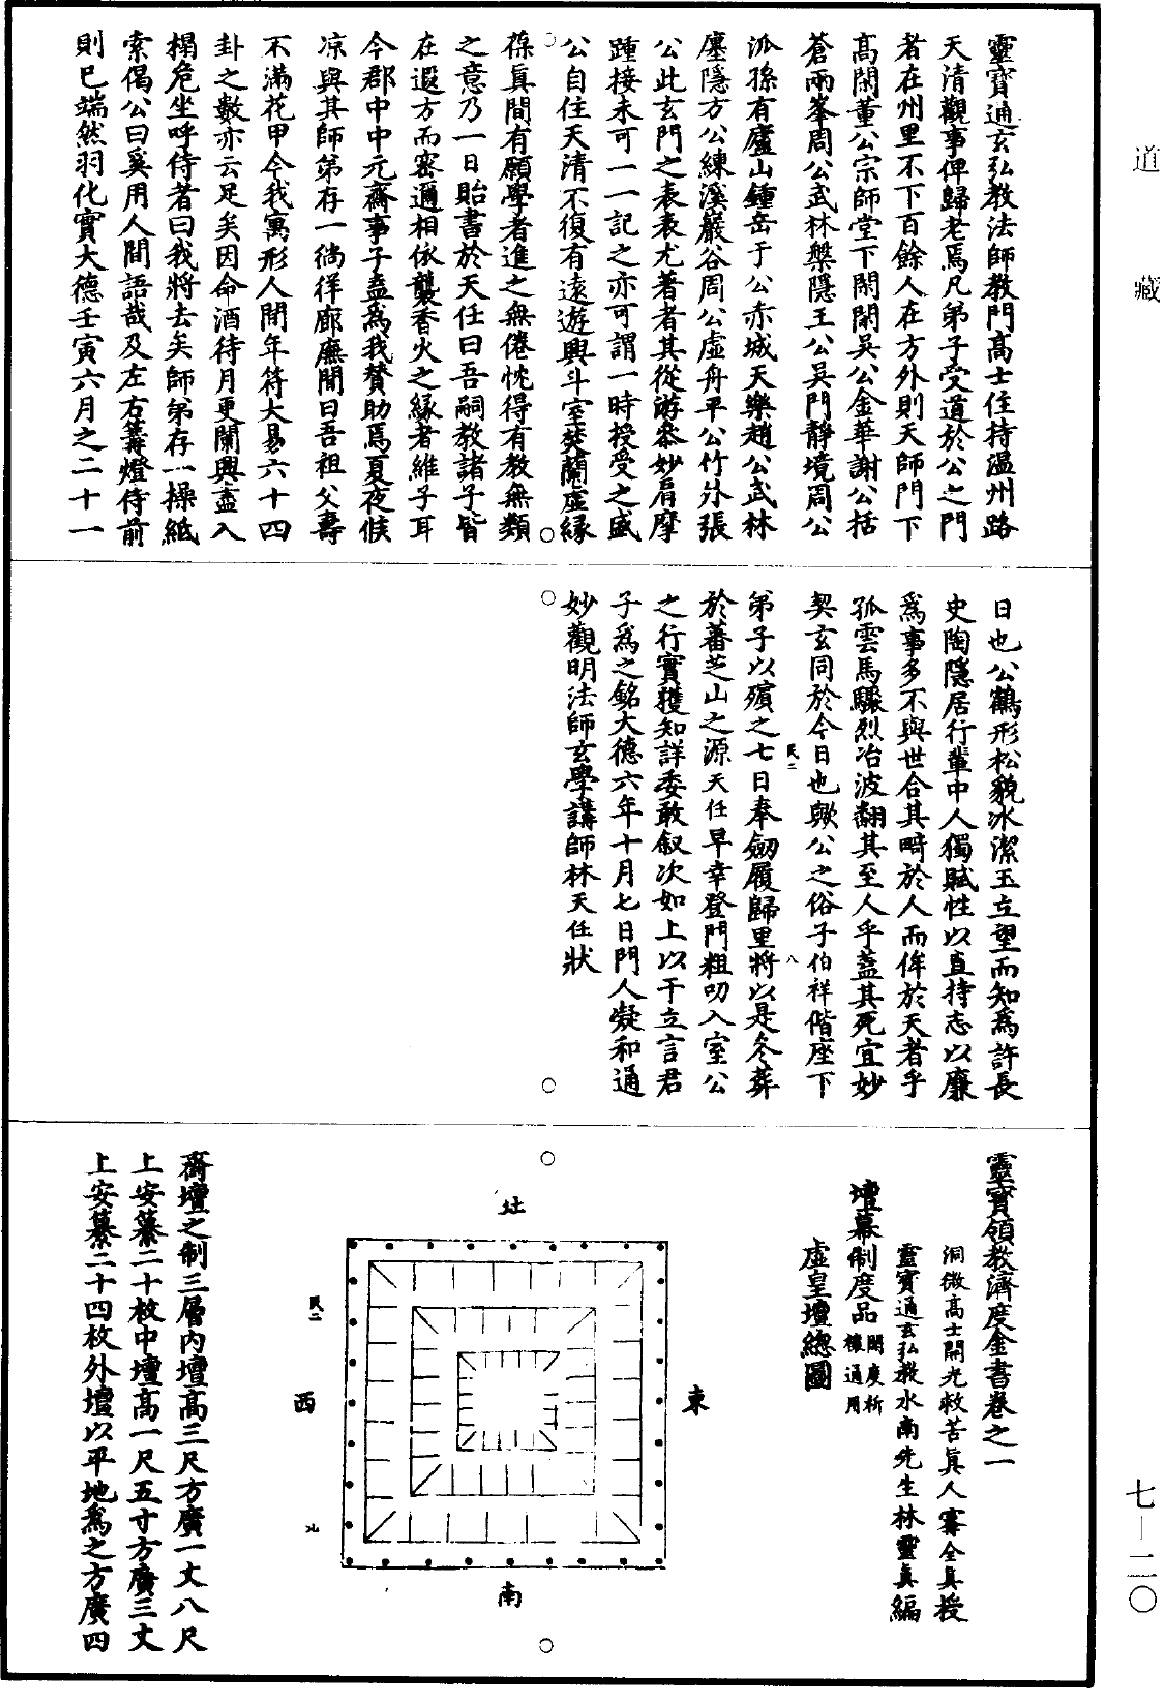 道藏
七—二〇
靈寶通玄弘教法師教門高士住持温州路
天清觀事俾歸老焉凡弟子受道於公之門
者在州里不下百餘人在方外則天師門下
高閑董公宗師堂下閑閑吳公金華謝公括
蒼兩峯周公武林槃隱王公吳門靜境周公
派孫有廬山鍾岳于公赤城天樂趙公武林
廛隱方公練溪巖谷周公虛舟平公竹外張
公此玄門之表表尤著者其從游叅妙肩摩
踵接未可一一記之亦可謂一時授受之盛
公自住天清不復有遠遊興斗室焚蘭虛緣
葆真間有願學者進之無倦忱得有教無類
之意乃一日貽書於天任曰吾嗣教諸子皆
在遐方而密邇相依襲香火之緣者維子耳
今郡中中元齋事子盍爲我贊助焉夏夜候
凉與其師弟存一徜徉廊廡間曰吾祖父壽
不滿花甲今我寓形人間年符大易六十四
卦之數亦云足矣因命酒待月更闌興盡入
榻危坐呼侍者曰我將去矣師弟存一操紙
索偈公曰奚用人間語哉及左右篝燈侍前
則已端然羽化實大德壬寅六月之二十一
日也公鶴形松貌冰潔玉立望而知爲許長
史陶隱居行輩中人獨賦性以直持志以廉
爲事多不與世合其畸於人而侔於天者乎
孤雲馬驟烈冶波翻其至人乎蓋其死宜妙
契玄同於今日也歟公之俗子伯祥偕座下
民二
八
弟子以殯之七日奉劒履歸里將以是冬葬
於蕃芝山之源天任早幸登門粗叨入室公
之行實獲知詳委敢叙次如上以干立言君
子爲之銘大德六年十月七日門人凝和通
妙觀明法師玄學講師林天任狀
靈寶領教濟度金書卷之一
洞微高士開光救苦真人甯全真授
靈寶通玄弘教水南先生林靈真編
壇幕制度品開度祈禳通用
虛皇壇總圖
東
灶
南
西
民二
北
齋壇之制三層內壇高三尺方廣一丈八尺
上安纂二十枚中壇高一尺五寸方廣三丈
上安纂二十四枚外壇以平地爲之方廣四